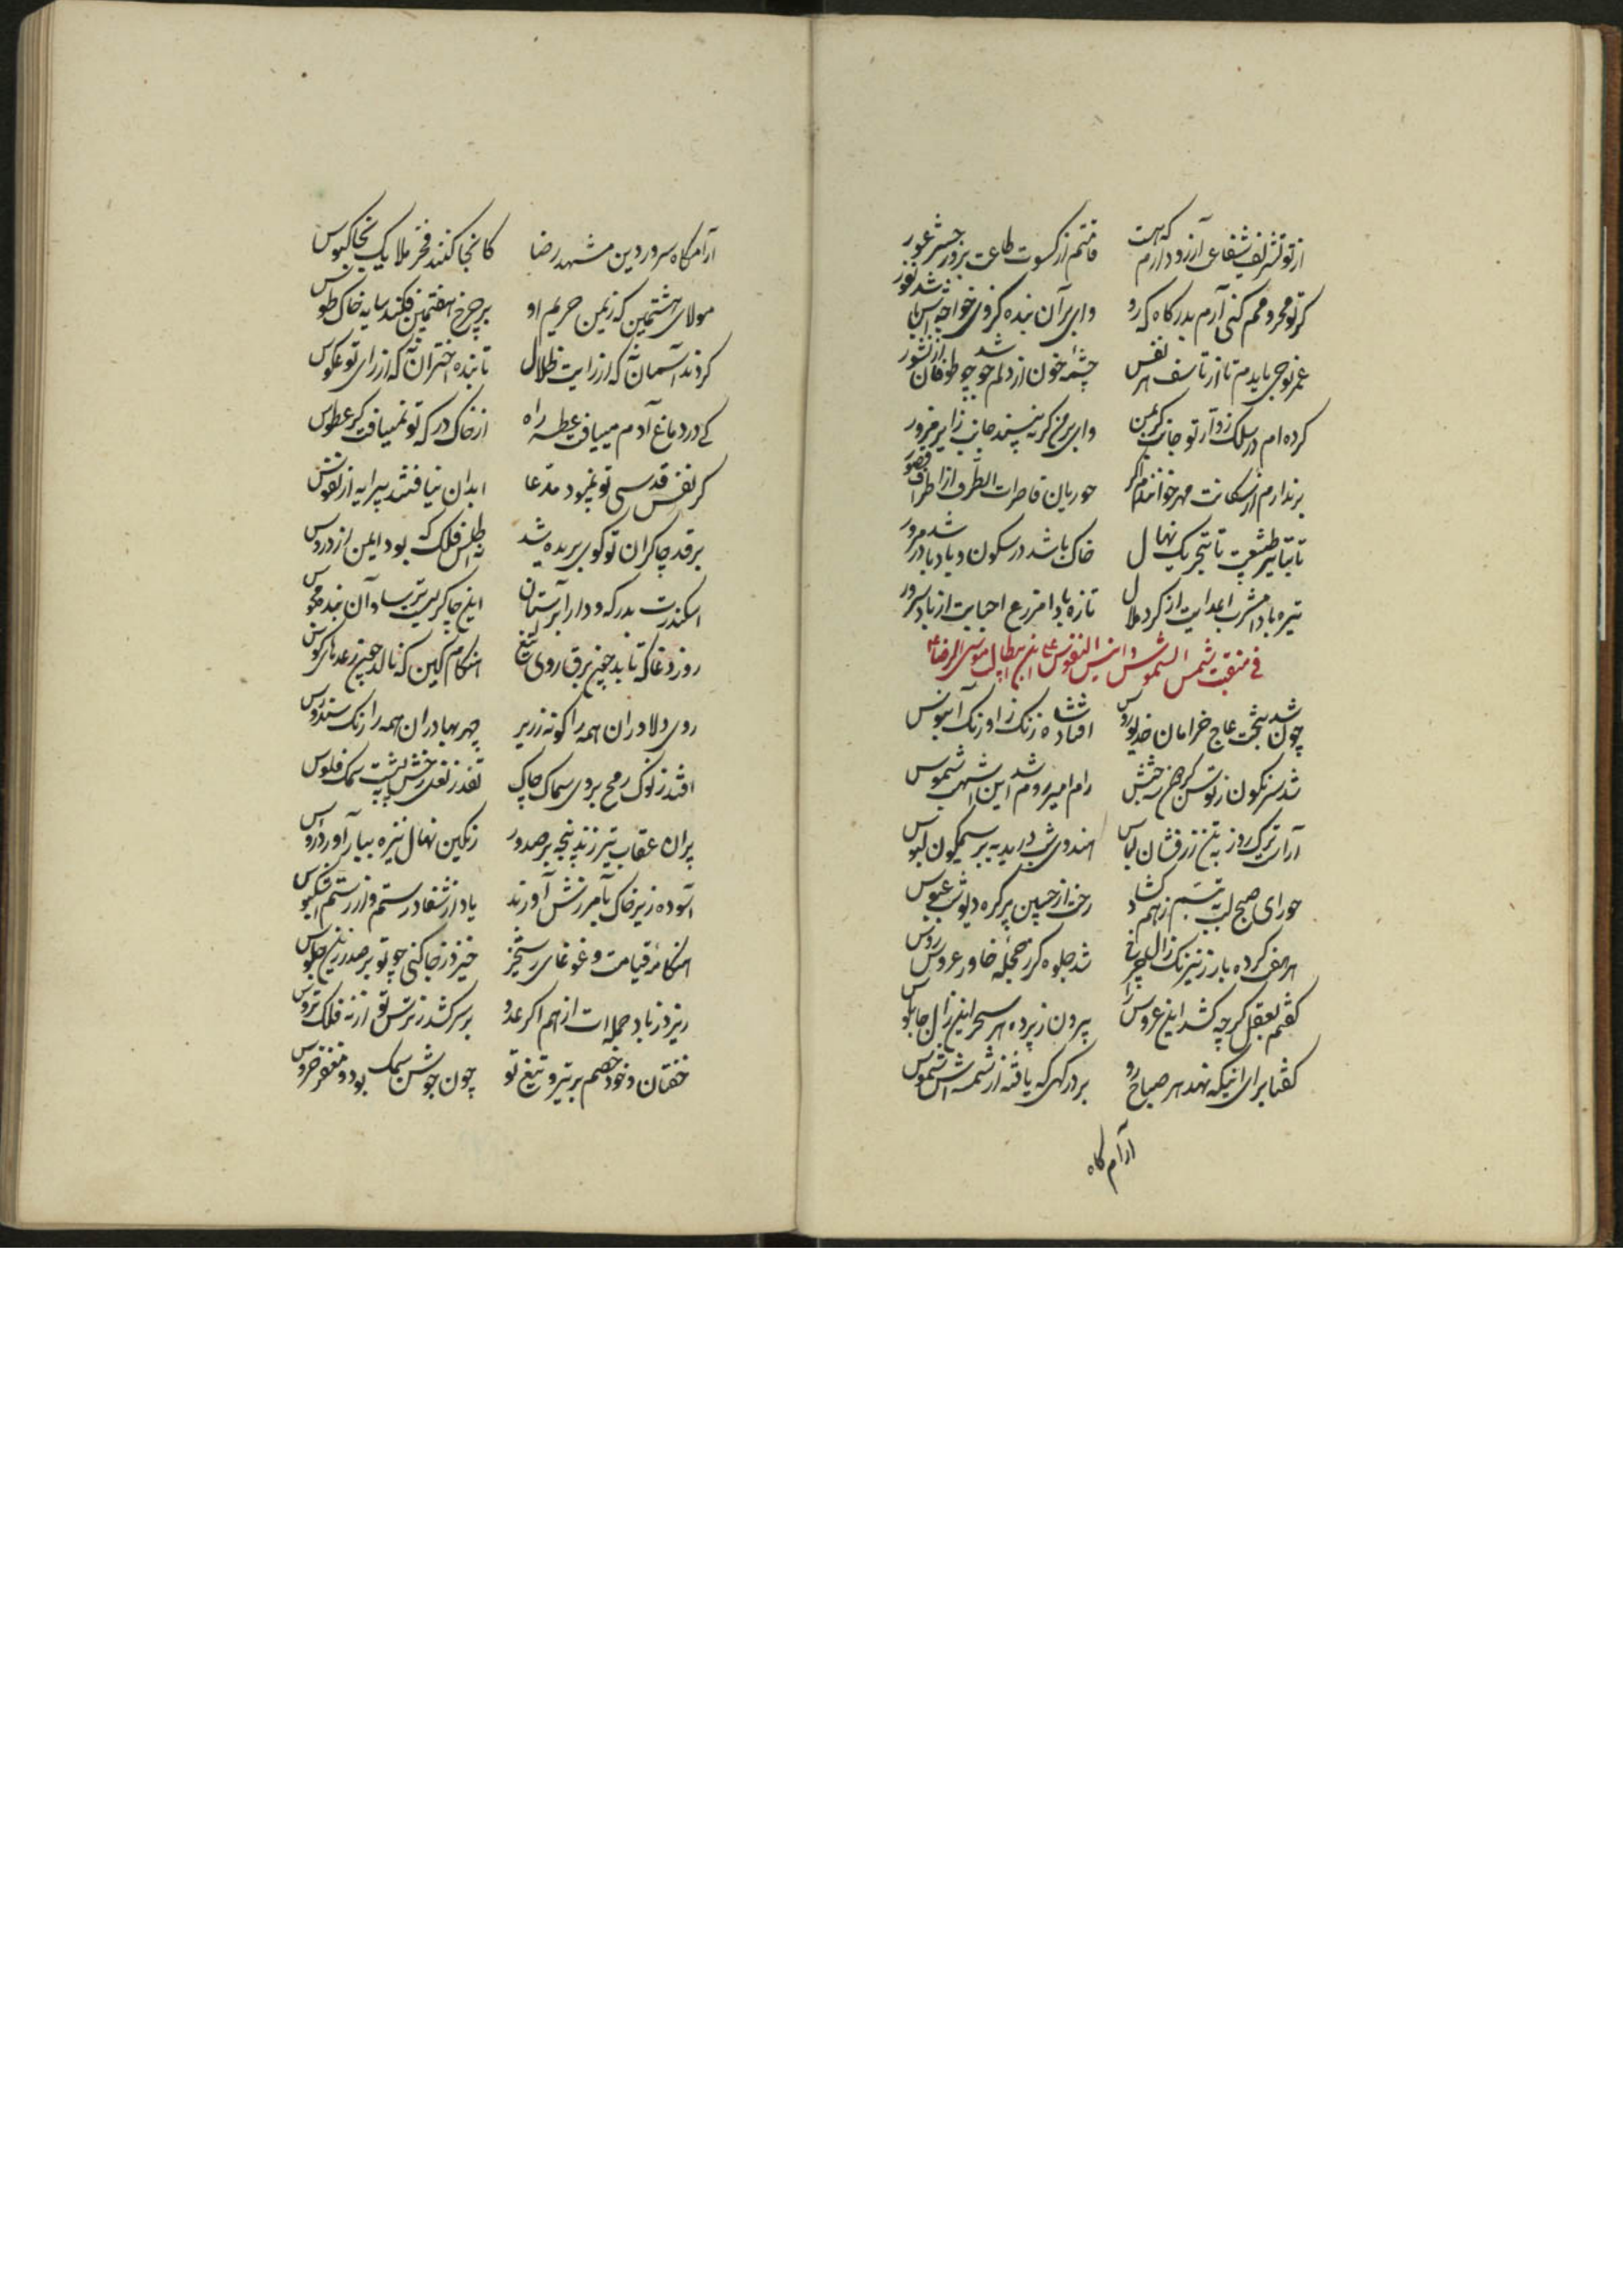 از تو تشریف شفاعی آرزو دارم که هست قامتم از کسوت طاعت بروز حشر عور
گر تو محرومم کنی آرم بدرگاه که رو وای بر آن بنده کز وی خواجه اش باشد نفور
عمر نوحی بایدم تا از تاسف هر نفس چشمهٔ خون از دلم جوشد چو طوفان از تنور
کرده ام در سلک زوار تو جا لیکن وای بر من گر نه بپسند
برندارم از سگانت مهر خوانندم اگر حوریان قاصرات الطرف از اطراف قصور
تا بتاثیر طبیعت تا بتحریک نهال خاک باشد در سکون و باد باشد در مرور
تیره بادا مشرب اعدایت از گرد ملال تازه بادا مزرع احبابت از باد سرور
فی منقبت شمس الشموس و انیس النفوس علی بن موسی الرضا
چون شد بتخت عاج خرامان خدیو روس افتاد شاه زنگ ز اورنگ آبنوس
شد سرنگون ز توسن گردون حبش رام امیر روم شد این اشهب شموس
آراست ترک روز بتن زرفشان لباس هندوی شب درید ببر سیمگون لبوس
حورای صبح لب به تبسم ز هم گشاد رخت از جبین پر گره دیو شب عبوس
هر هفت کرده باز ز نیرنگ زال چرخ شد جلوه گر ز حجلهٔ خاور عروس روس
گفتم بعقل کز چه کشد این عروس را بیرون ز پرده هر سحر این زال چاپلوس
گفتا برای اینکه نهد هر صباح رو بر درگهی که یافته از شمسه اش شموس
آرام گاه
آرامگاه سرور دین مشهد رضا کانجا کنند فخر ملایک بخاکبوس
مولای هشتمین که زیمن حریم او بر چرخ هفتمین فکند سایه خاک طوس
گردند آسمان نه که از رایت ظلال تابنده اختران نه که از رای تو عکوس
کی در دماغ آدم مییافت عطسه راه از خاک درگه تو نمییافت گر عطوس
گر نفس قدسی تو نمیبود مدعا ابدان نیافتند پیرایه از نفوس
بر قد چاکران تو گویی بریده شد اطلس فلک که بود ایمن از دروس
اسکندرت بدرگه و دارا بر آستان این چاکریت ترسا و آن بنده مجوس
روز دغا که تابد چون برق روی تیغ هنگام کین که نالد چون رعد نای کوس
روی دلاوران همه را گونه زریر چهر بهادران همه را رنگ سندروس
افتد ز نوک رمح بروی سماک چاک تفتد ز نعل رخش به پشت سمک فلوس
پران عقاب تیر زند پنجه بر صدور رنگین نهال نیزه ببار آورد رؤس
آسوده زیر خاک بآمرزش آورند یاد از شغاد رستم و از رستم اشکبوس
هنگامهٔ قیامت و غوغای رستخیز خیزد ز جا کنی چو تو بر صدر زین جلوس
ریزد ز باد حمله ات از هم اگر عدو بر سر کشد ز ترس تو از نه فلک تروس
خفتان و خود خصم بر تیر و تیغ تو چون جوشن سمک بود و مغفر خروس